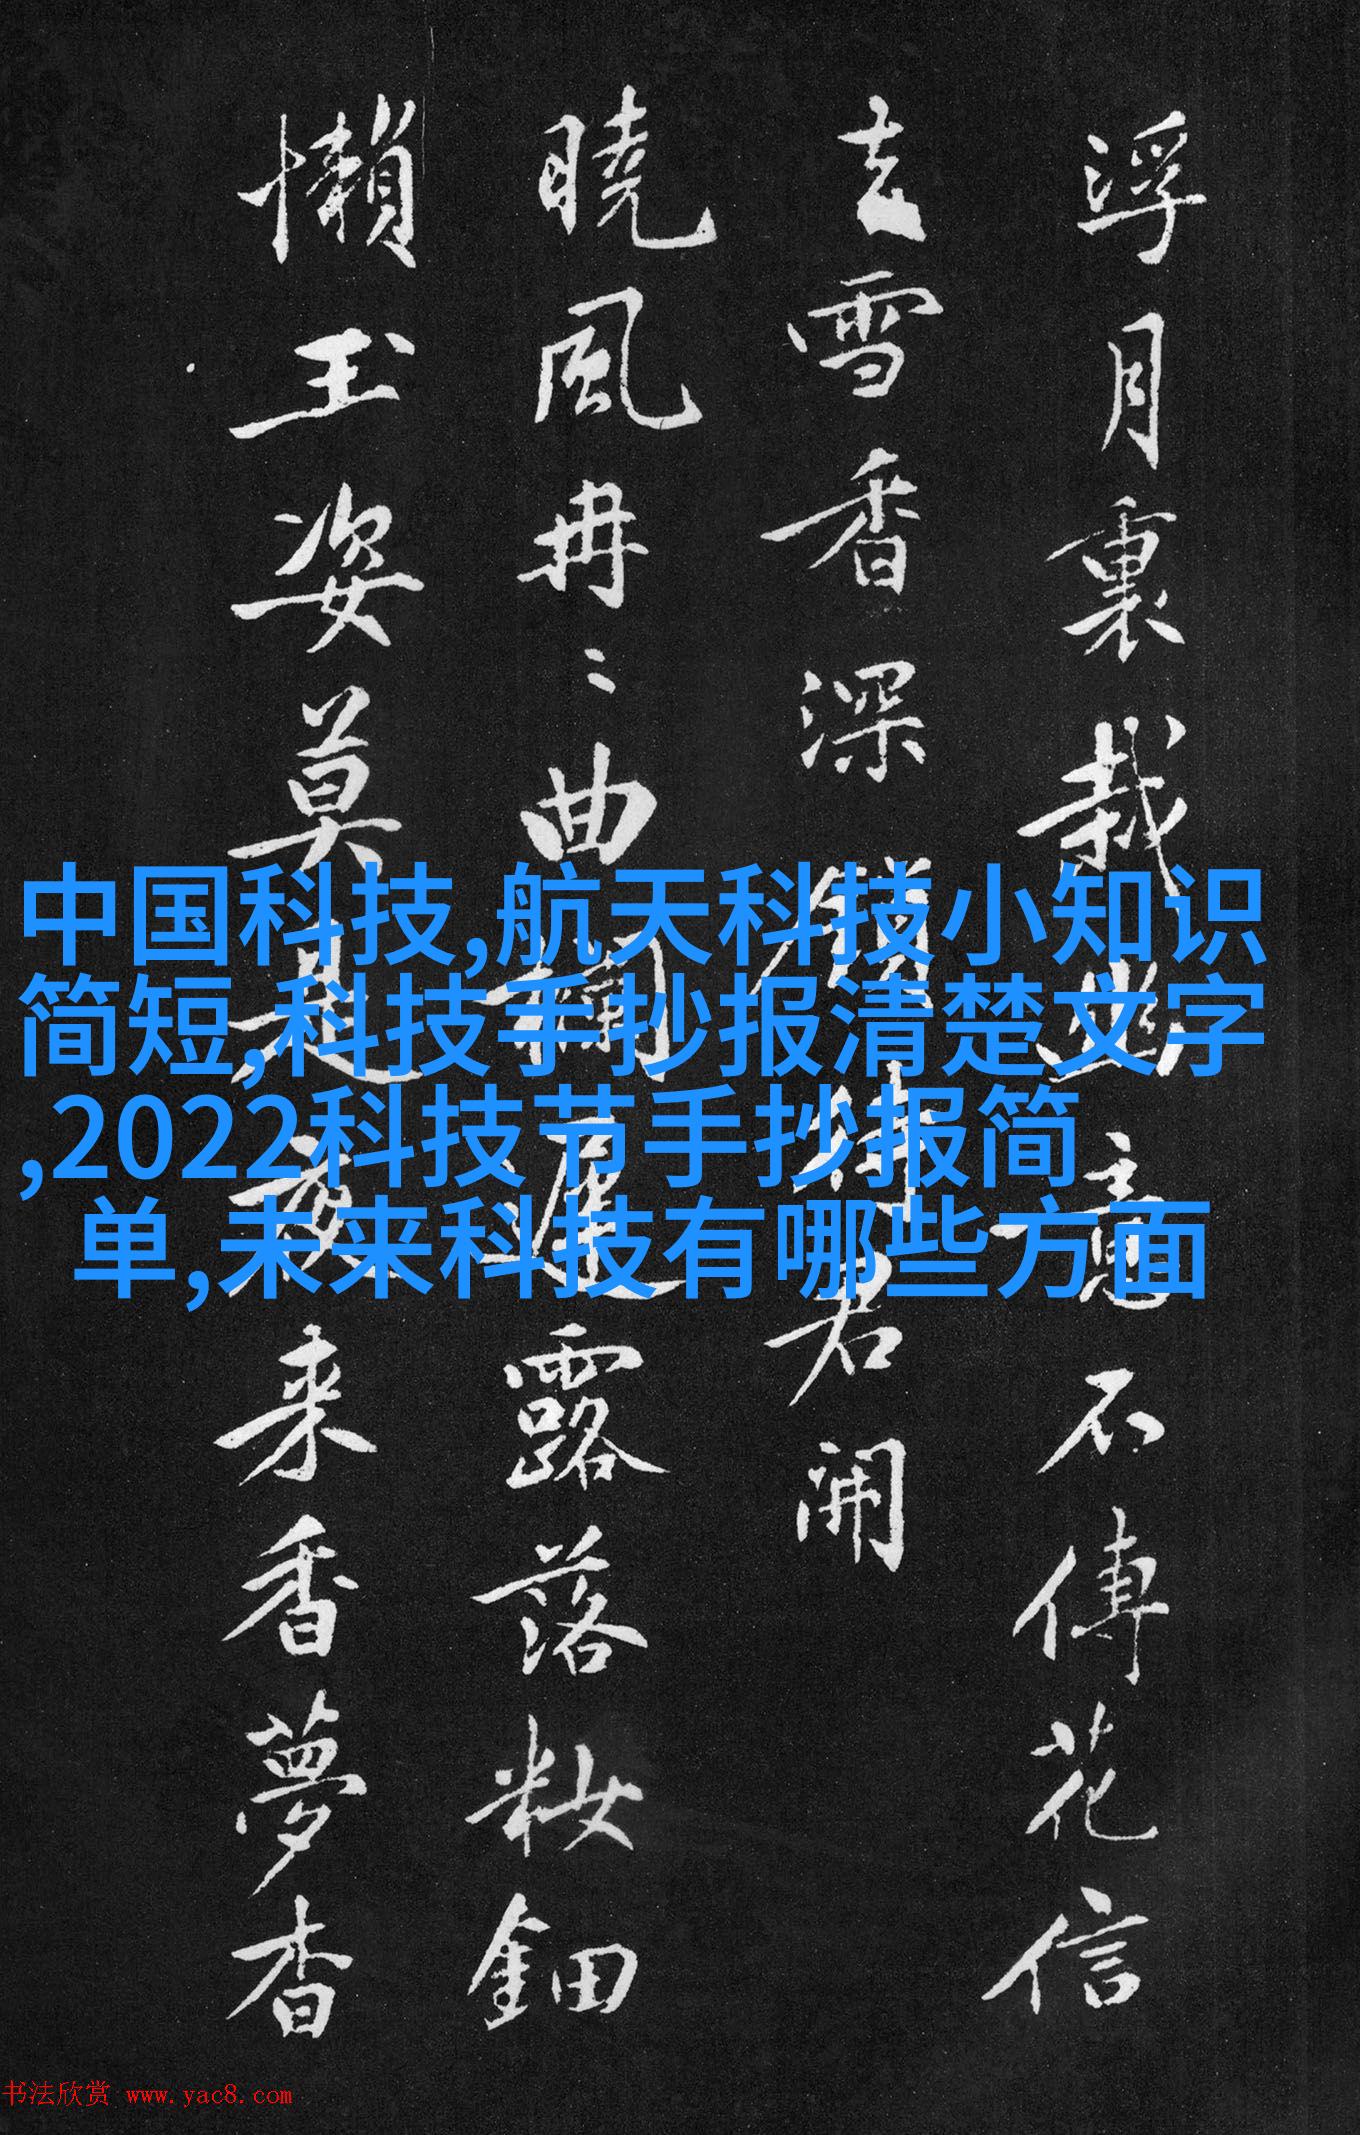 浮月裏栽幽意不傳花信
雪香深鎖待君開
曉風冉〻曲欄遲露落粧鈿
懶玉姿莫是夜来香夢杳
中国科技,航天科技小知识
简短,科技手抄报清楚文字
,2022科技节手抄报简
单,未来科技有哪些方面
书法欣赏 www.yac8.com